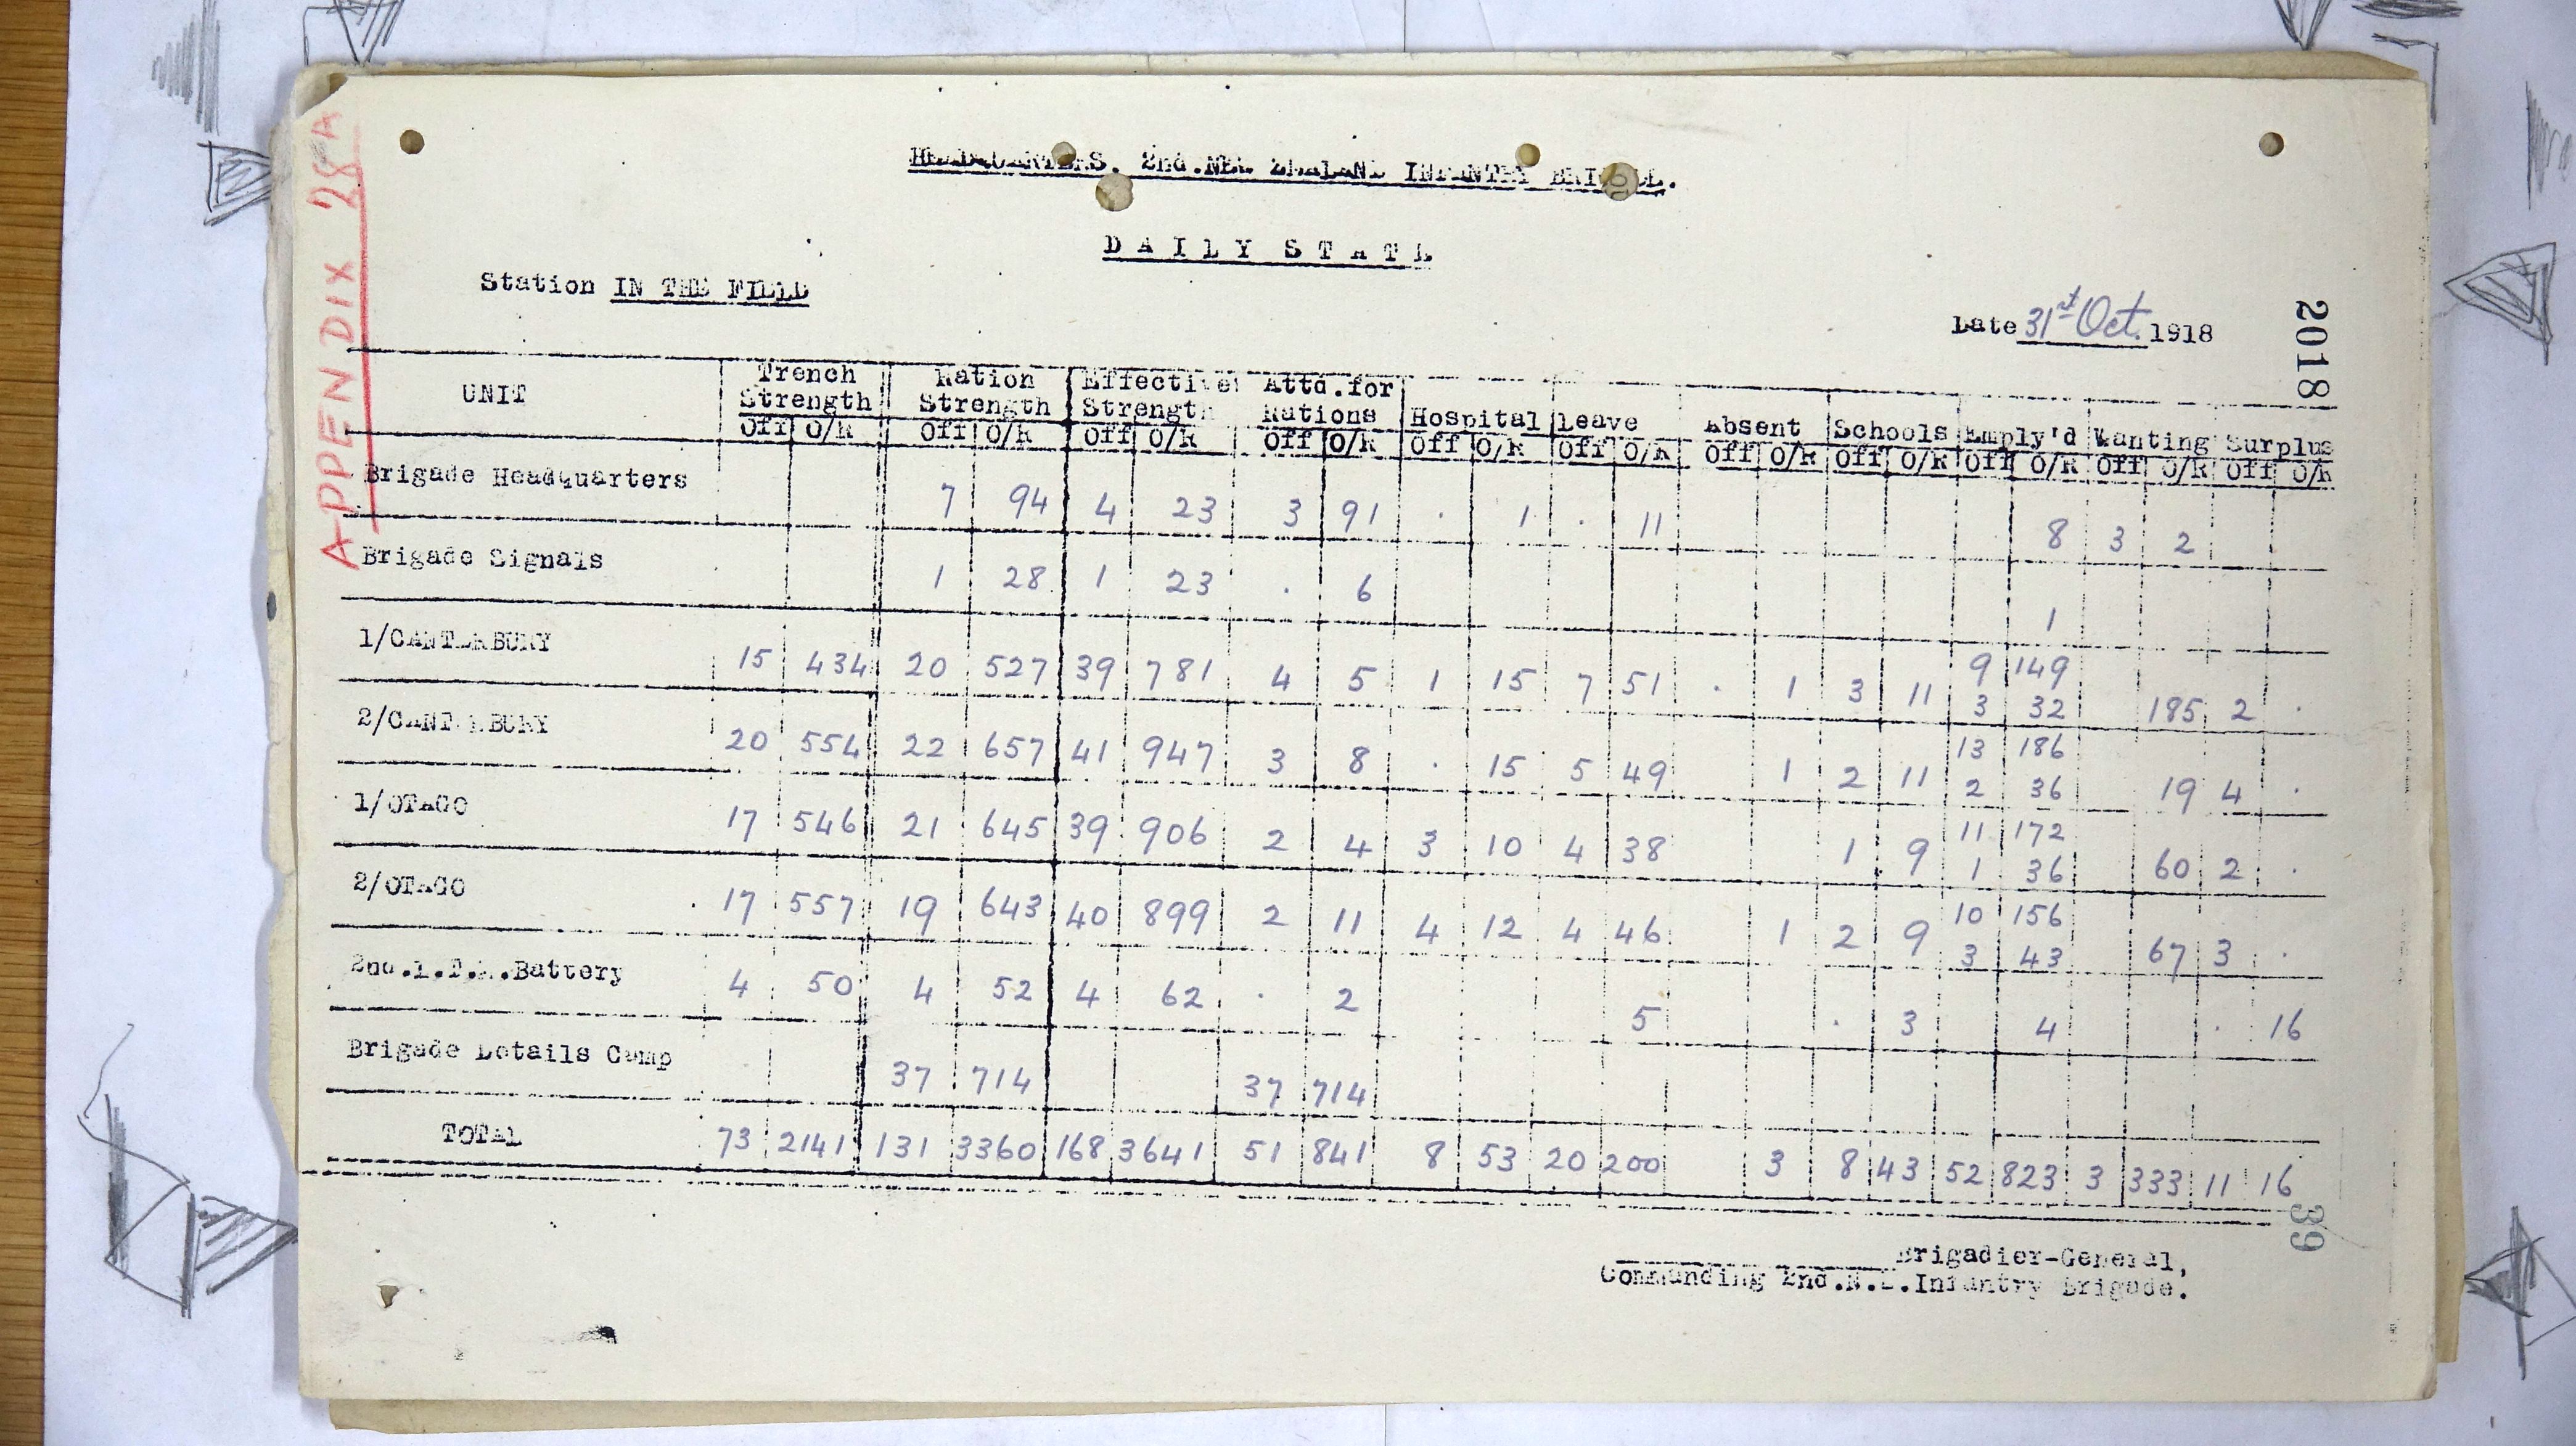 APPENDIX 28A
HEADQUARTERS. 2nd.NEW ZEALAND INFANTRY BRIGADE.
DAILY STATE
Station IN THE FIELD
Date 31st Oct. 1918
2018
UNIT Trench Strength Ration Strength Effective Strength Attd.for Rations Hospital Leave Absent Schools Emply'd Wanting Surplus
Off O/R Off O/R Off O/R Off O/R Off O/R Off O/R Off O/R Off O/R Off O/R Off O/R Off O/R
Brigade Headquarters 7 94 4 23 3 91 . 1 . 11 8 3 2
Brigade Signals 1 28 1 23 . 6 1
1/CANTERBURY 15 434 20 527 39 781 4 5 1 15 7 51 . 1 3 11 9 149
3 32 185 2 .
2/CANTERBURY 20 554 22 657 41 947 3 8 . 15 5 49 1 2 11 13 186
2 36 19 4 .
1/OTAGO 17 546 21 645 39 906 2 4 3 10 4 38 1 9 11 172
1 36 60 2 .
2/OTAGO 17 557 19 643 40 899 2 11 4 12 4 46 1 2 9 10 156
3 43 67 3 .
2nd.L.T.M.Battery 4 50 4 52 4 62 . 2 5 . 3 4 . 16
Brigade Details Camp 37 714 37 714
TOTAL 73 2141 131 3360 168 3641 51 841 8 53 20 200 3 8 43 52 823 3 333 11 16
39
Brigadier-General,
Commanding 2nd.N.Z.Infantry Brigade.